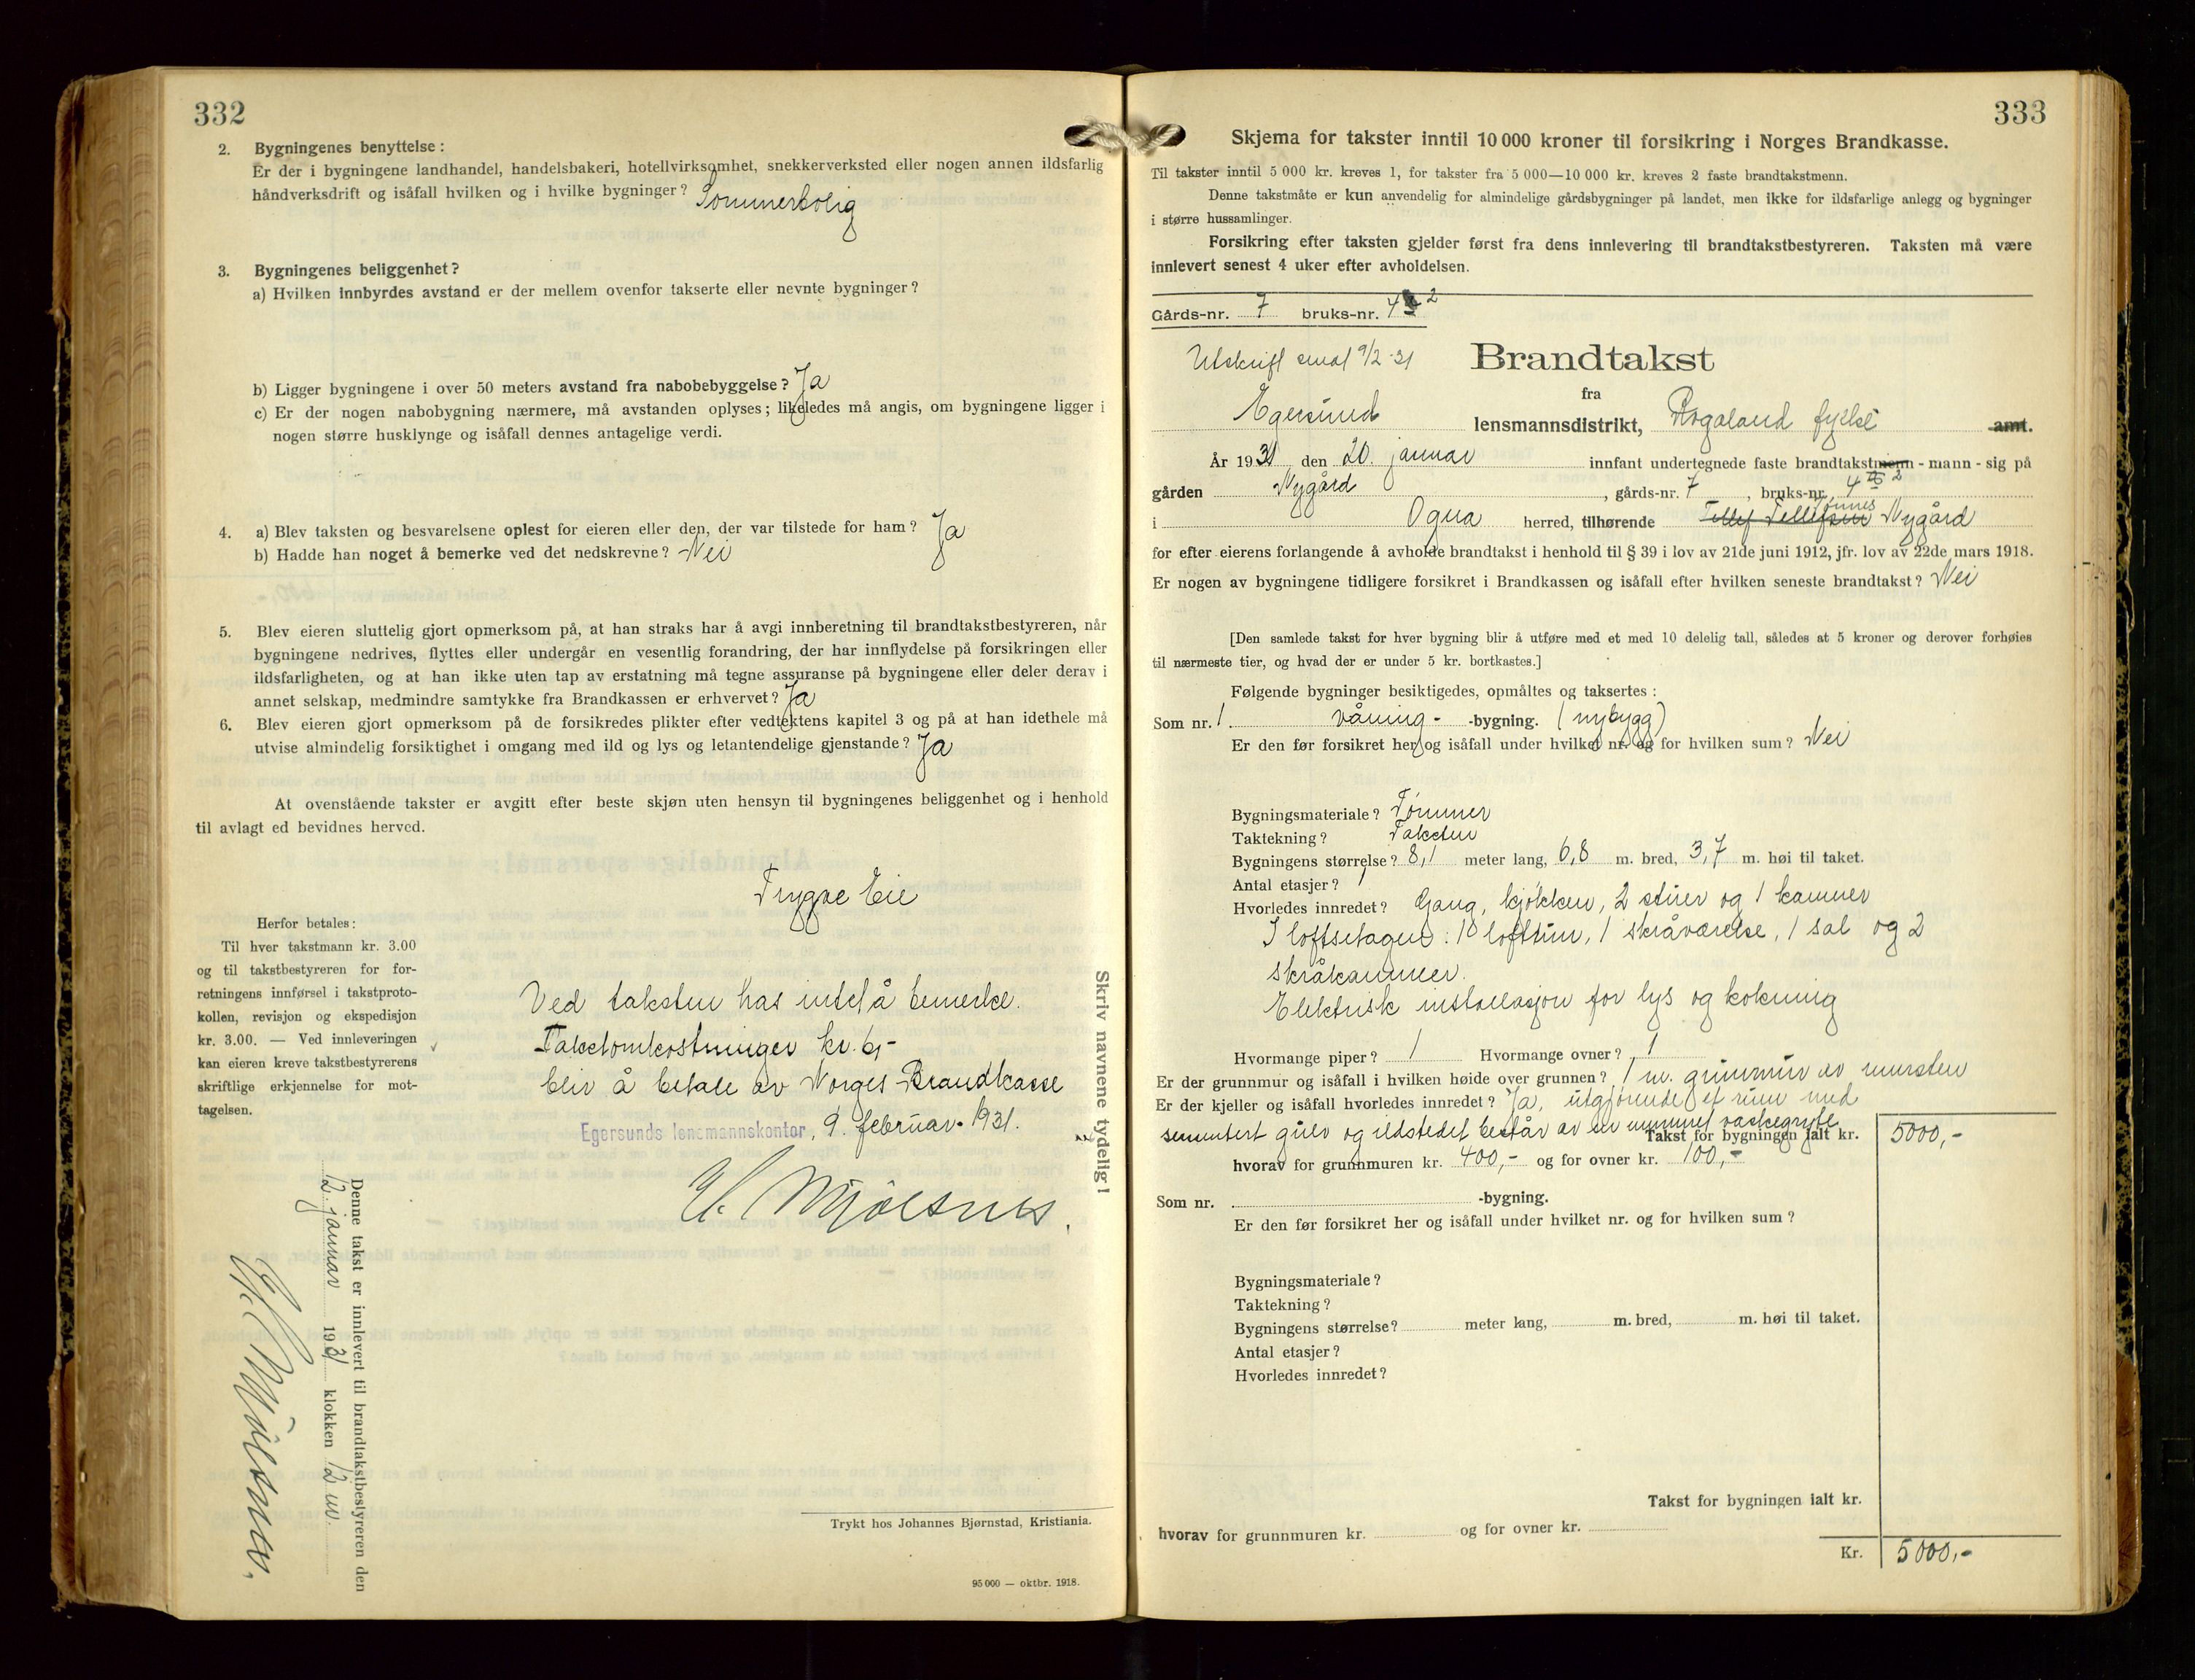 332
2. Bygningenes benyttelse:
Er der i bygningene landhandel, handelsbakeri, hotellvirksomhet, snekkerverksted eller nogen annen ildsfarlig
håndverksdrift og isåfall hvilken og i hvilke bygninger? Sommerbolig
3. Bygningenes beliggenhet?
a) Hvilken innbyrdes avstand er der mellem ovenfor takserte eller nevnte bygninger?
b) Ligger bygningene i over 50 meters avstand fra nabobebyggelse? Ja
c) Er der nogen nabobygning nærmere, må avstanden oplyses; likeledes må angis, om bygningene ligger i
nogen større husklynge og isåfall dennes antagelige verdi.
4. a) Blev taksten og besvarelsene oplest for eieren eller den, der var tilstede for ham? Ja
b) Hadde han noget å bemerke ved det nedskrevne? Nei
5. Blev eieren sluttelig gjort opmerksom på, at han straks har å avgi innberetning til brandtakstbestyreren, når
bygningene nedrives, flyttes eller undergår en vesentlig forandring, der har innflydelse på forsikringen eller
ildsfarligheten, og at han ikke uten tap av erstatning må tegne assuranse på bygningene eller deler derav i
annet selskap, medmindre samtykke fra Brandkassen er erhvervet? Ja
6. Blev eieren gjort opmerksom på de forsikredes plikter efter vedtektens kapitel 3 og på at han idethele må
utvise almindelig forsiktighet i omgang med ild og lys og letantendelige gjenstande? Ja
At ovenstående takster er avgitt efter beste skjøn uten hensyn til bygningenes beliggenhet og i henhold
til avlagt ed bevidnes herved.
Trygve Eie
Herfor betales:
Til hver takstmann kr. 3.00
og til takstbestyreren for for-
retningens innførsel i takstproto-
kollen, revisjon og ekspedisjon
kr. 3.00. — Ved innleveringen
kan eieren kreve takstbestyrerens
skriftlige erkjennelse for mot-
tagelsen.
Ved taksten has intet å bemerke.
Takstomkostninger kr. 6,-
blir å betale av Norges Brandkasse
Egersunds lensmannskontor, 9. februar 1931.
Mjølsnes
Skriv navnene tydelig!
Denne takst er innlevert til brandtakstbestyreren den
12. januar 1931 klokken 12
Mjølsnes.
Trykt hos Johannes Bjørnstad, Kristiania.
95 000 — oktbr. 1918.
333
Skjema for takster inntil 10 000 kroner til forsikring i Norges Brandkasse.
Til takster inntil 5 000 kr. kreves 1, for takster fra 5 000—10 000 kr. kreves 2 faste brandtakstmenn.
Denne takstmåte er kun anvendelig for almindelige gårdsbygninger på landet, men ikke for ildsfarlige anlegg og bygninger
i større hussamlinger.
Forsikring efter taksten gjelder først fra dens innlevering til brandtakstbestyreren. Taksten må være
innlevert senest 4 uker efter avholdelsen.
Gårds-nr. 7 bruks-nr. 42
Utskrift sendt 9/2-31
Brandtakst
fra
Egersund lensmannsdistrikt, Rogaland fylke amt.
År 1931 den 20. januar innfant undertegnede faste brandtakstmenn - mann - sig på
gården Nygård, gårds-nr. 7, bruks-nr. 42
i Ogna herred, tilhørende Tellef Tellefsen Tønnes Nygård
for efter eierens forlangende å avholde brandtakst i henhold til § 39 i lov av 21de juni 1912, jfr. lov av 22de mars 1918.
Er nogen av bygningene tidligere forsikret i Brandkassen og isåfall efter hvilken seneste brandtakst? Nei
[Den samlede takst for hver bygning blir å utføre med et med 10 delelig tall, således at 5 kroner og derover forhøies
til nærmeste tier, og hvad der er under 5 kr. bortkastes.]
Følgende bygninger besiktigedes, opmåltes og taksertes:
Som nr. 1 våning- -bygning. (nybygg)
Er den før forsikret her og isåfall under hvilket nr. og for hvilken sum? Nei
Bygningsmateriale? Tømmer
Taktekning? Taksten
Bygningens størrelse? 8,1 meter lang, 6,8 m. bred, 3,7 m. høi til taket.
Antal etasjer? 1
Hvorledes innredet? Gang, kjøkken, 2 stuer og 1 kammer
I loftsetagen: 1 loftsrum, 1 skråværelse, 1 sal og 2
skråkammer.
Elektrisk installasjon for lys og kokning
Hvormange piper? 1 Hvormange ovner? 1
Er der grunnmur og isåfall i hvilken høide over grunnen? 1 m. grunmur av mursten
Er der kjeller og isåfall hvorledes innredet? Ja, utgjørende et rum med
sementert gulv og ildstedet består av en murret vaskegryte
Takst for bygningen ialt kr. 5000,-
hvorav for grunnmuren kr. 400,- og for ovner kr. 100,-
Som nr. -bygning.
Er den før forsikret her og isåfall under hvilket nr. og for hvilken sum?
Bygningsmateriale?
Taktekning?
Bygningens størrelse? meter lang, m. bred, m. høi til taket.
Antal etasjer?
Hvorledes innredet?
Takst for bygningen ialt kr.
hvorav for grunnmuren kr. og for ovner kr.
Kr. 5000,-